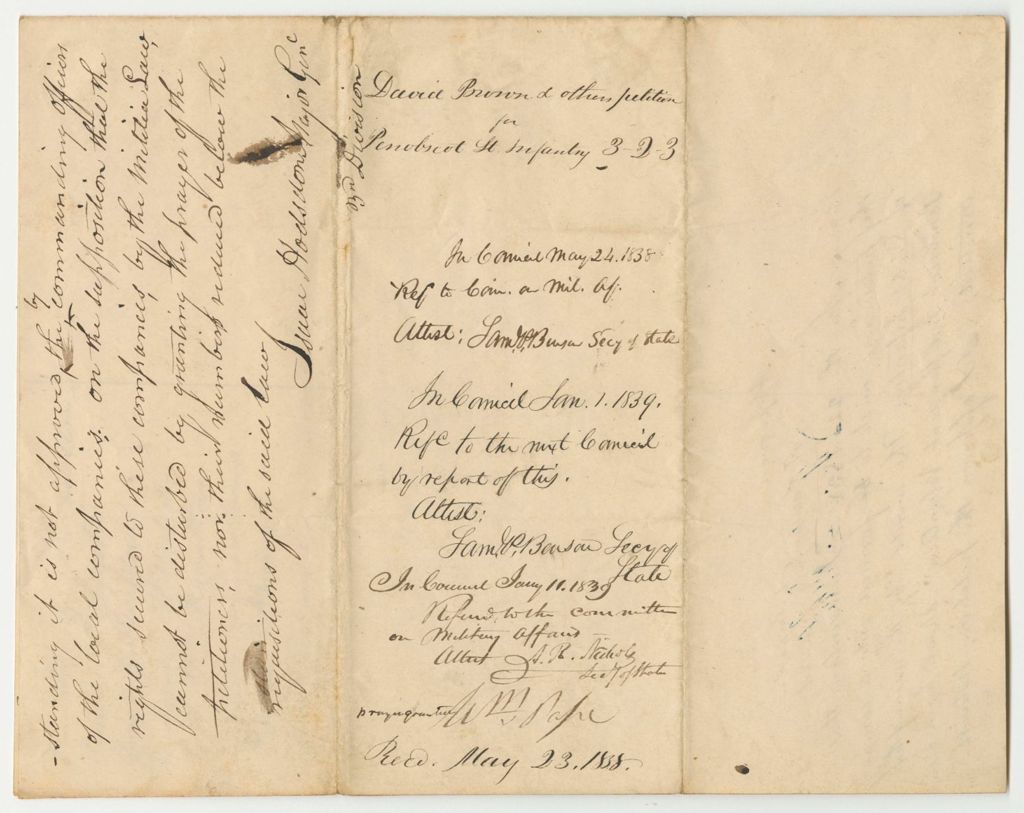 -standing it is not approved by the commanding officers
of the local companies. on the supposition that the
rights secured to these companies by the Militia Law,
cannot be disturbed by granting the prayer of the
petitioners, nor their numbers reduced below the
requisitions of the said law
Isaac Hodsdon Major Genl
Division
David Brown & others petition
for
Penobscot Lt Infantry 3-2-3
In Council May 24. 1838
Ref to Com. on Mil. Af.
Attest: Saml P. Benson Secy of State
In Council Jan. 1. 1839.
Refd to the next Council
by report of this.
Attest:
Saml P. Benson Secy of
State
In Council Jany 11. 1839
Referred to the committee
on Military Affairs
Attest A. R. Nichols
Secy of State
prayer granted
Recd. May 23. 1838.